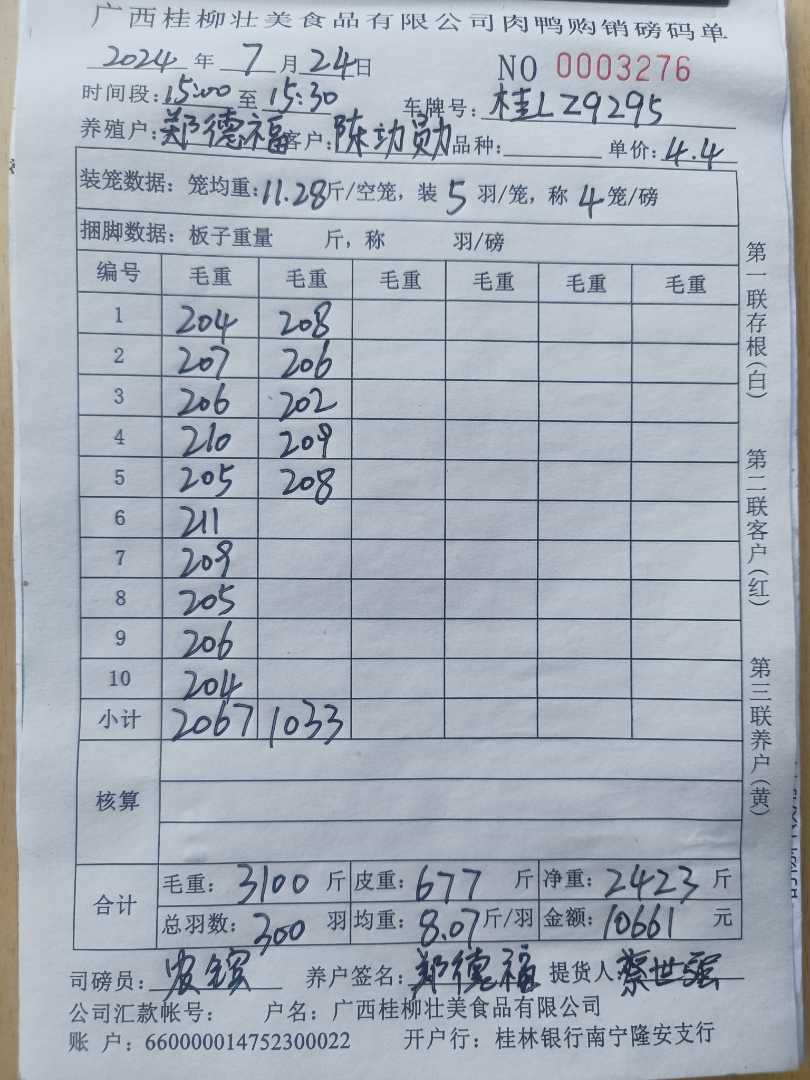 广西桂柳壮美食品有限公司肉鸭购销磅码单
2024 年 7 月 24 日 NO 0003276
时间段:15:00 至 15:30 车牌号:桂LZ9295
养殖户:郑德福 客户:陈功勋 品种: 单价:4.4
装笼数据:笼均重:11.28斤/空笼,装 5 羽/笼,称 4 笼/磅
捆脚数据:板子重量 斤,称 羽/磅
编号 毛重 毛重 毛重 毛重 毛重 毛重
1 204 208
2 207 206
3 206 202
4 210 209
5 205 208
6 211
7 209
8 205
9 206
10 204
小计 2067 1033
核算
合计 毛重:3100 斤 皮重:677 斤 净重:2423 斤
总羽数:300 羽 均重:8.07斤/羽 金额:10661 元
司磅员: 养户签名:郑德福 提货人:蔡世强
公司汇款帐号: 户名:广西桂柳壮美食品有限公司
账 户:660000014752300022 开户行:桂林银行南宁隆安支行
第一联存根(白)
第二联客户(红)
第三联养户(黄)